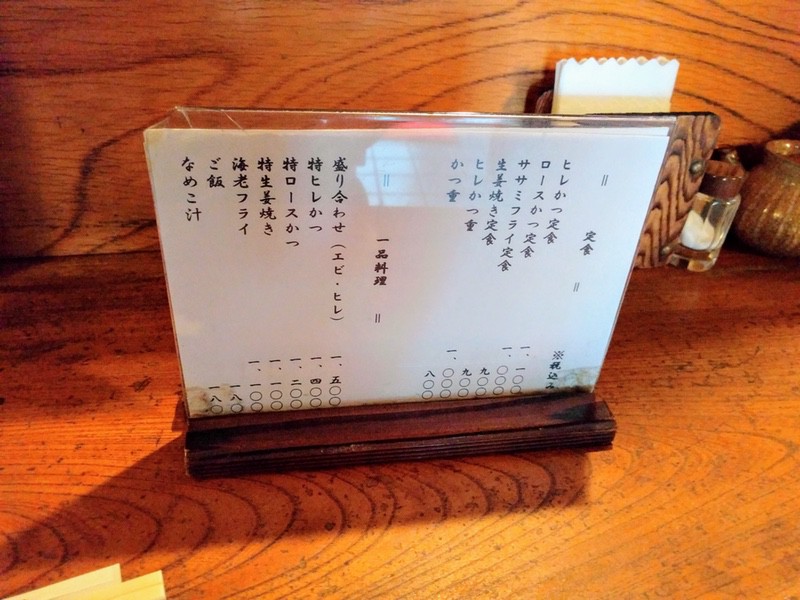 = 定食 =
※税込み
ヒレかつ定食 一、一〇〇
ロースかつ定食 一、〇〇〇
ササミフライ定食 九〇〇
生姜焼き定食 九〇〇
ヒレかつ重 一、〇〇〇
かつ重 八〇〇
= 一品料理 =
盛り合わせ（エビ・ヒレ） 一、五〇〇
特ヒレかつ 一、四〇〇
特ロースかつ 一、二〇〇
特生姜焼き 一、〇〇〇
海老フライ 一、一〇〇
ご飯 一八〇
なめこ汁 一八〇